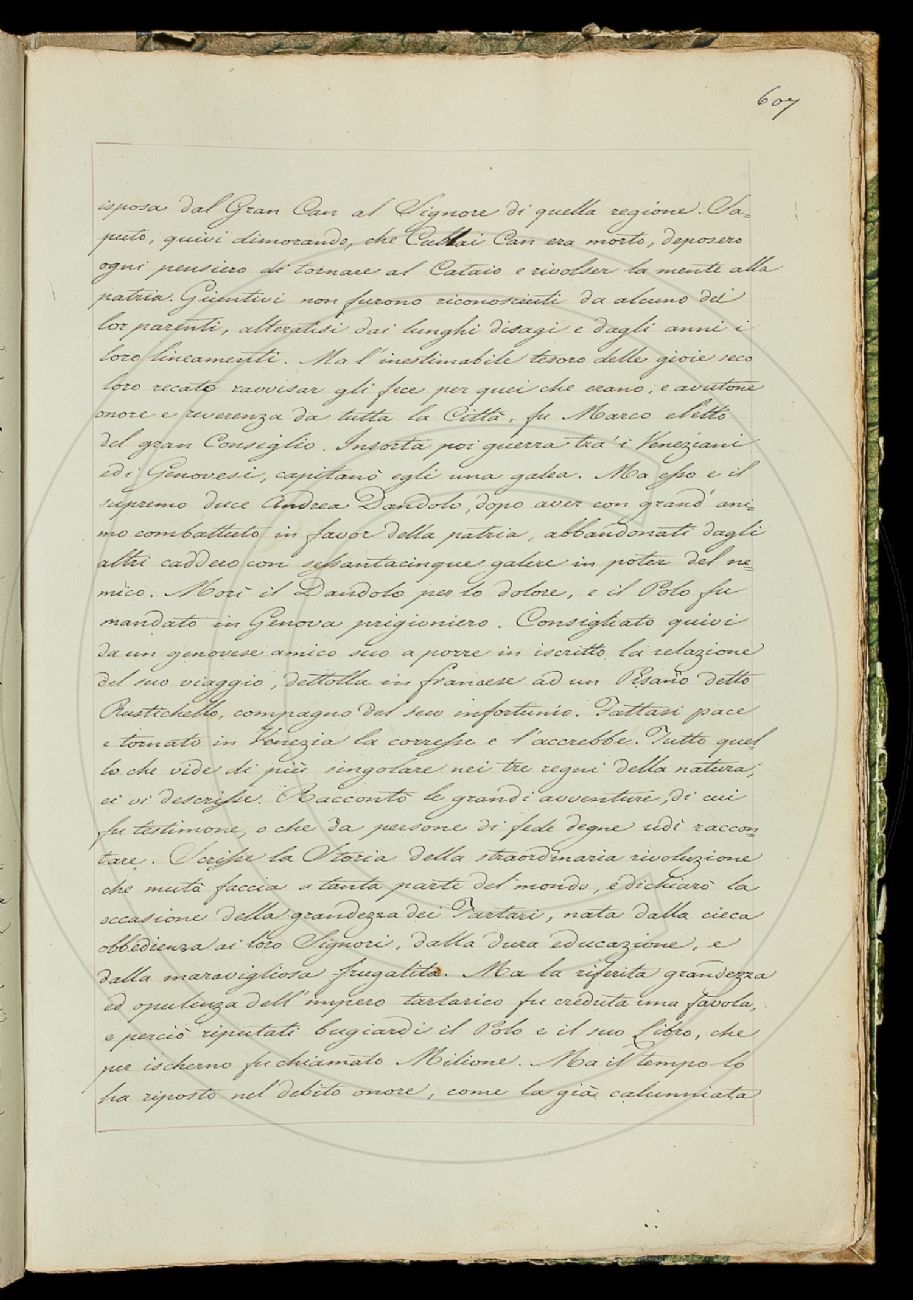 607
isposa dal Gran Can al Signore di quella regione. Sa=
puto, quivi dimorando, che Cublai Can era morto, deposero
ogni pensiero di tornare al Cataio e rivolser la mente alla
patria. Giuntivi non furono riconosciuti da alcuno dei
lor parenti, alteratisi dai lunghi disagi e dagli anni i
loro lineamenti. Ma l'inestimabile tesoro delle gioie seco
loro recato ravvisar gli fece per quei che erano, e avutone
onore e reverenza da tutta la Città, fu Marco eletto
del gran Consiglio. Insorta poi guerra tra i Veneziani
ed i Genovesi, capitanò egli una galea. Ma esso e il
supremo duce Andrea Dandolo, dopo aver con grand'ani=
mo combattuto in favor della patria, abbandonati dagli
altri caddero con sessantacinque galere in poter del ne=
mico. Morì il Dandolo per lo dolore, e il Polo fu
mandato in Genova prigioniero. Consigliato quivi
da un genovese amico suo a porre in iscritto la relazione
del suo viaggio, dettolla in francese ad un Pisano detto
Rustichello, compagno del suo infortunio. Fattasi pace
e tornato in Venezia la corresse e l'accrebbe. Tutto quel=
lo che vide di più singolare nei tre regni della natura,
ei vi descrisse. Raccontò le grandi avventure, di cui
fu testimone, o che da persone di fede degne udì raccon=
tare. Scrisse la Storia della straordinaria rivoluzione
che mutò faccia a tanta parte del mondo, e dichiarò la
occasione della grandezza dei Tartari, nata dalla cieca
obbedienza ai loro Signori, dalla dura educazione, e
dalla maravigliosa frugalità. Ma la riferita grandezza
ed opulenza dell'impero tartarico fu creduta una favola,
e perciò riputati bugiardi il Polo e il suo Libro, che
per ischerno fu chiamato Milione. Ma il tempo lo
ha riposto nel debito onore, come la già calunniata